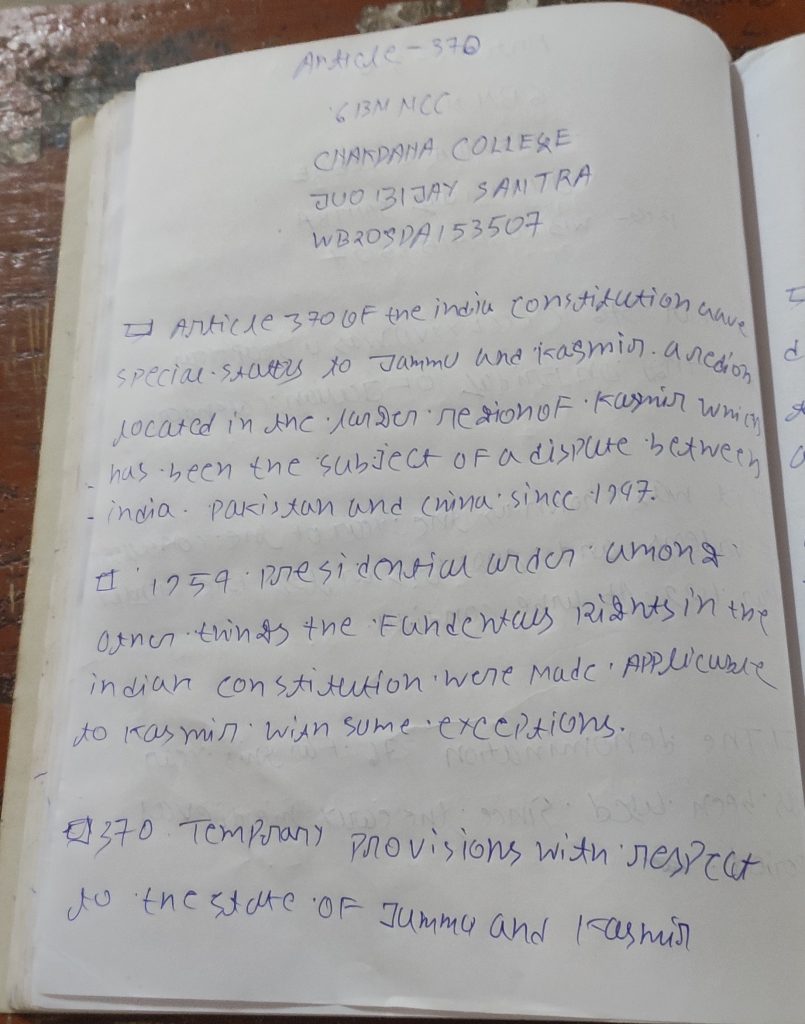 Article - 370
6 BN NCC
CHAKDAHA COLLEGE
JUO BIJAY SANTRA
WB20SDA153507
Article 370 OF the india constitution gave
special status to Jammu and Kasmir. a region
located in the larger region of Kasmir which
has been the subject of a dispute between
india. Pakistan and China since 1947.
1954 Presidential order among
other things the Fundentals Rights in the
indian constitution were Made Applicable
to Kasmir with some exceptions.
370 Temprary provisions with respect
to the state OF Jummu and Kasmir